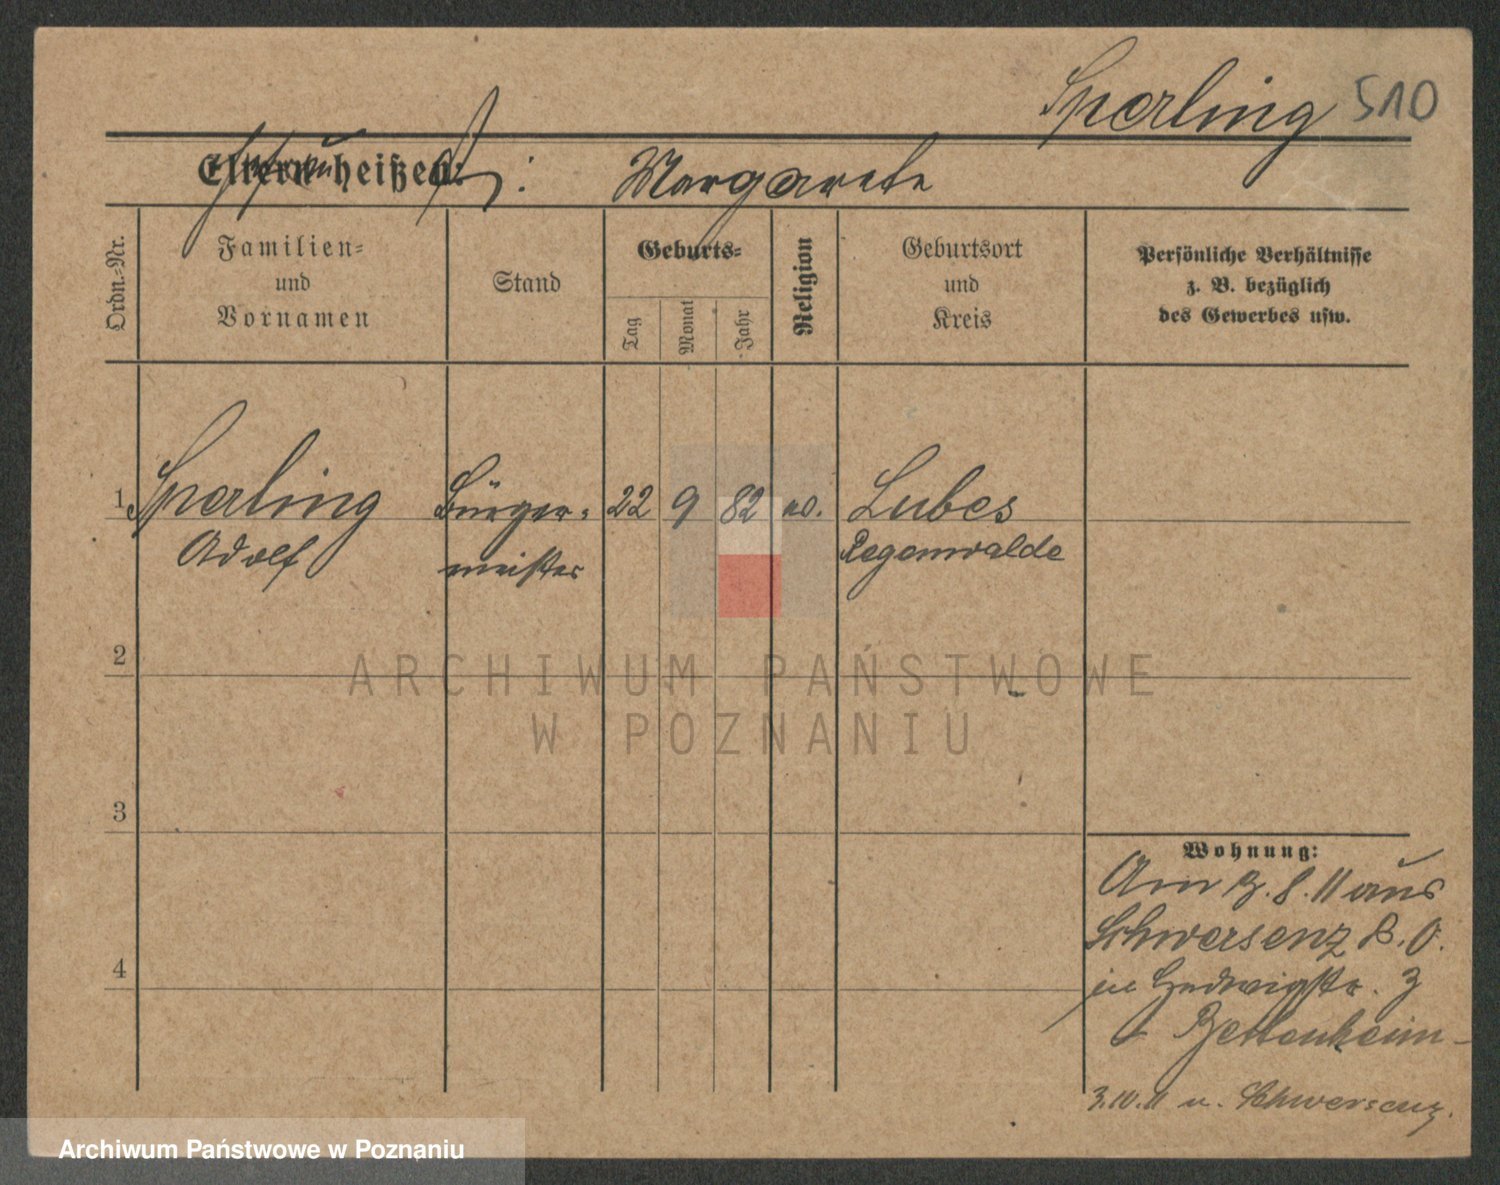 Sperling 510
Eltern heißen: Margarete
Ordn.-Nr.
Familien-
und
Vornamen
Stand
Geburts-
Tag
Monat
Jahr
Religion
Geburtsort
und
Kreis
Persönliche Verhältnisse
z. B. bezüglich
des Gewerbes usw.
1. Sperling Bürger- 22 9 82 Lubes
Adolf meister Regenwalde
2
3
4
Wohnung:
Am 3. 8. 11 aus
Schwersenz P. O.
in Hedwigstr. 3
3. 10. 11 n. Schwersenz.
ARCHIWUM PAŃSTWOWE
W POZNANIU
Archiwum Państwowe w Poznaniu